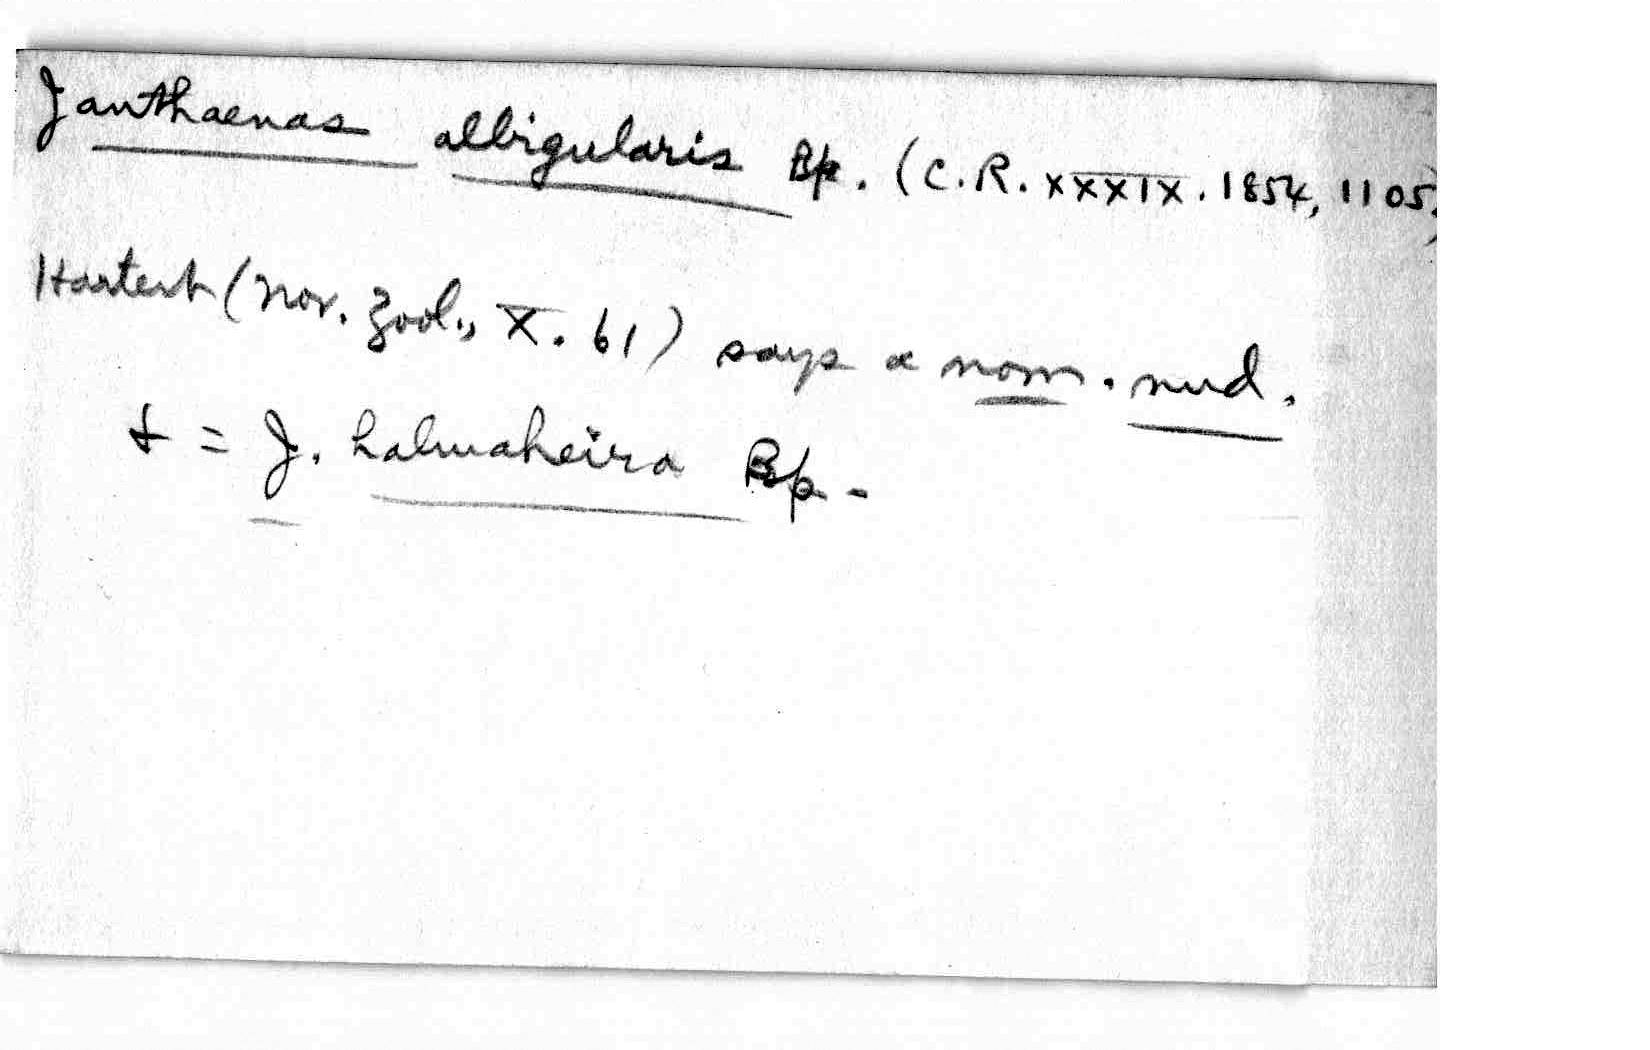 Janthaenas albigularis Bp. (C.R. XXXIX. 1854, 1105)
Hartert (Nov. Zool., X. 61) says a nom. nud.
& = J. halmaheira Bp.